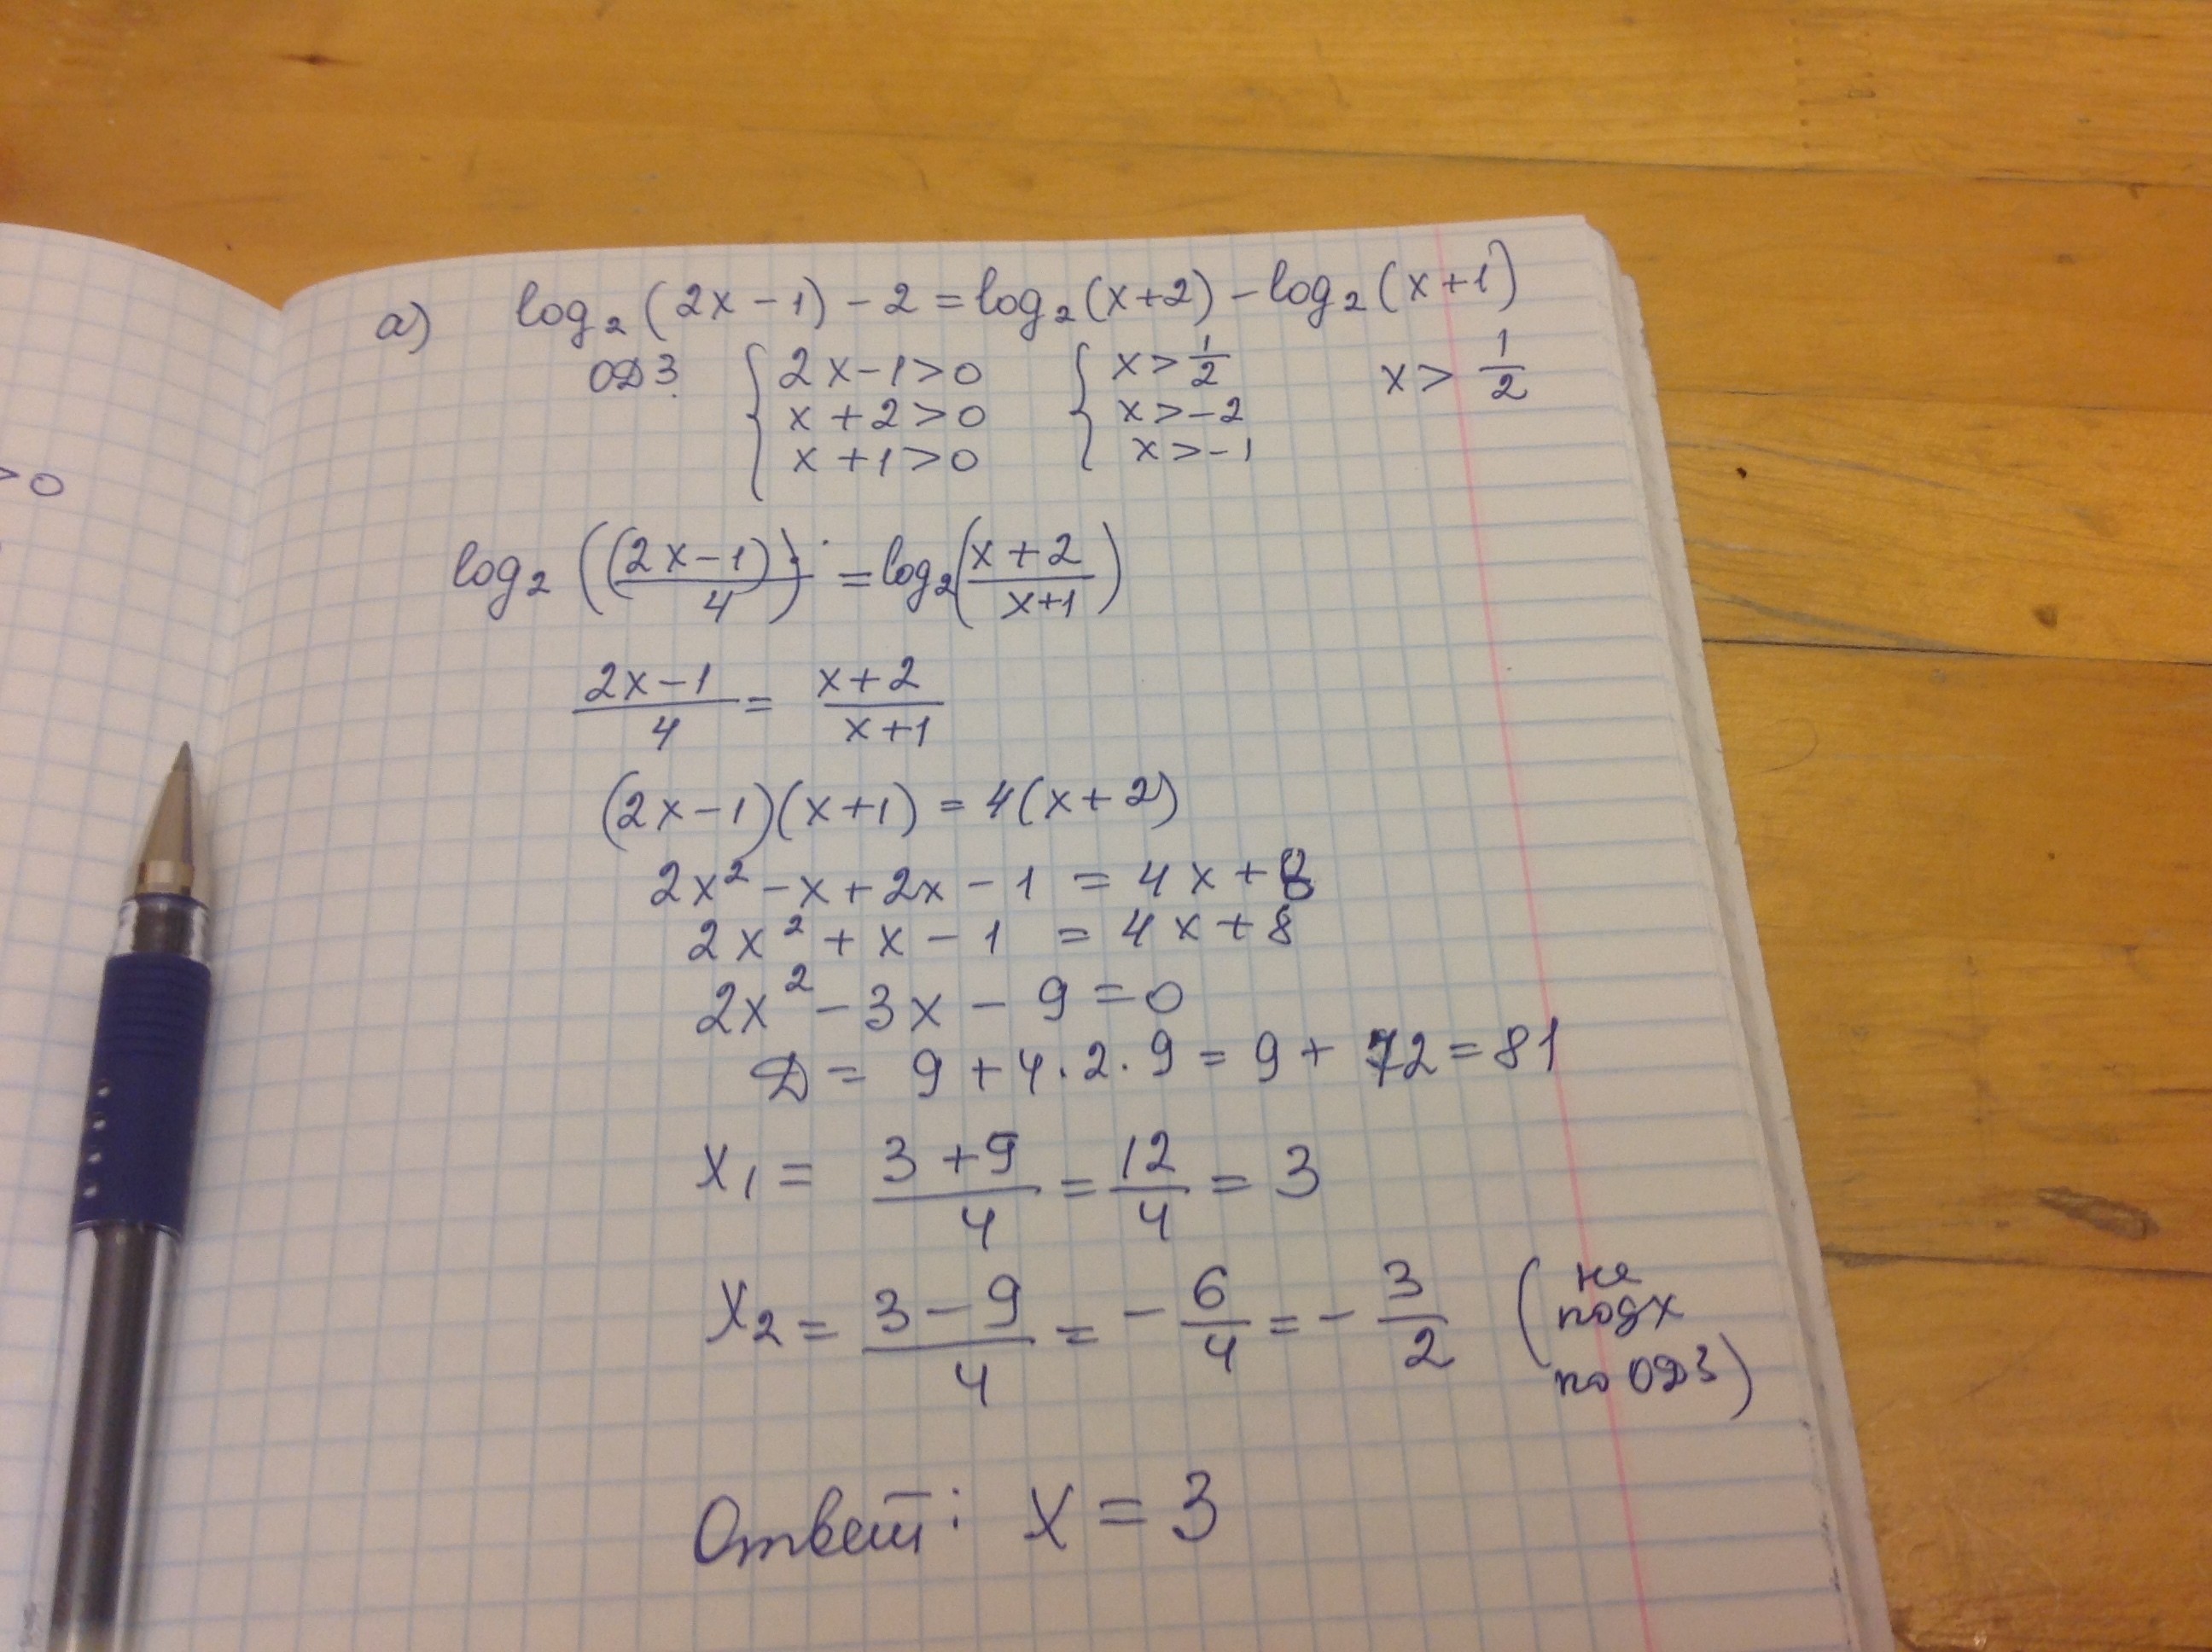 >0
а) log₂(2x-1)-2=log₂(x+2)-log₂(x+1)
ОДЗ. { 2x-1>0 { x>1/2 x>1/2
x+2>0 x>-2
x+1>0 x>-1
log₂((2x-1)/4)=log₂((x+2)/(x+1))
(2x-1)/4=(x+2)/(x+1)
(2x-1)(x+1)=4(x+2)
2x²-x+2x-1=4x+8
2x²+x-1=4x+8
2x²-3x-9=0
Д=9+4·2·9=9+72=81
x₁=(3+9)/4=12/4=3
x₂=(3-9)/4=-6/4=-3/2 (не
подх
по ОДЗ)
Ответ: x=3